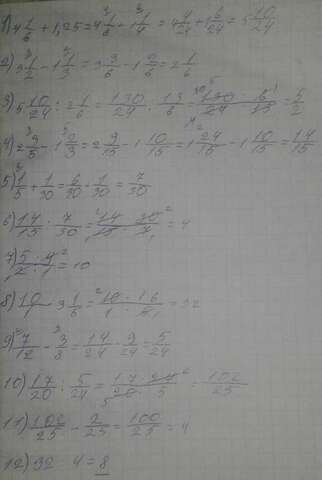 1) 4 1/6 + 1,25 = 4 1/6 + 1 1/4 = 4 4/24 + 1 6/24 = 5 10/24
2) 3 1/2 - 1 1/3 = 3 3/6 - 1 2/6 = 2 1/6
3) 5 10/24 : 2 1/6 = 130/24 : 13/6 = 130 · 6 / 24 · 13 = 5/2
4) 2 3/5 - 1 2/3 = 2 9/15 - 1 10/15 = 1 24/15 - 1 10/15 = 14/15
5) 1/5 + 1/30 = 6/30 + 1/30 = 7/30
6) 14/15 : 7/30 = 14 · 30 / 15 · 7 = 4
7) 5 · 4 / 2 · 1 = 10
8) 10 · 3 1/5 = 10 · 16 / 1 · 5 = 32
9) 7/12 - 3/8 = 14/24 - 9/24 = 5/24
10) 17/20 : 5/24 = 17 · 24 / 20 · 5 = 102/25
11) 102/25 - 2/25 = 100/25 = 4
12) 32 4 = 8